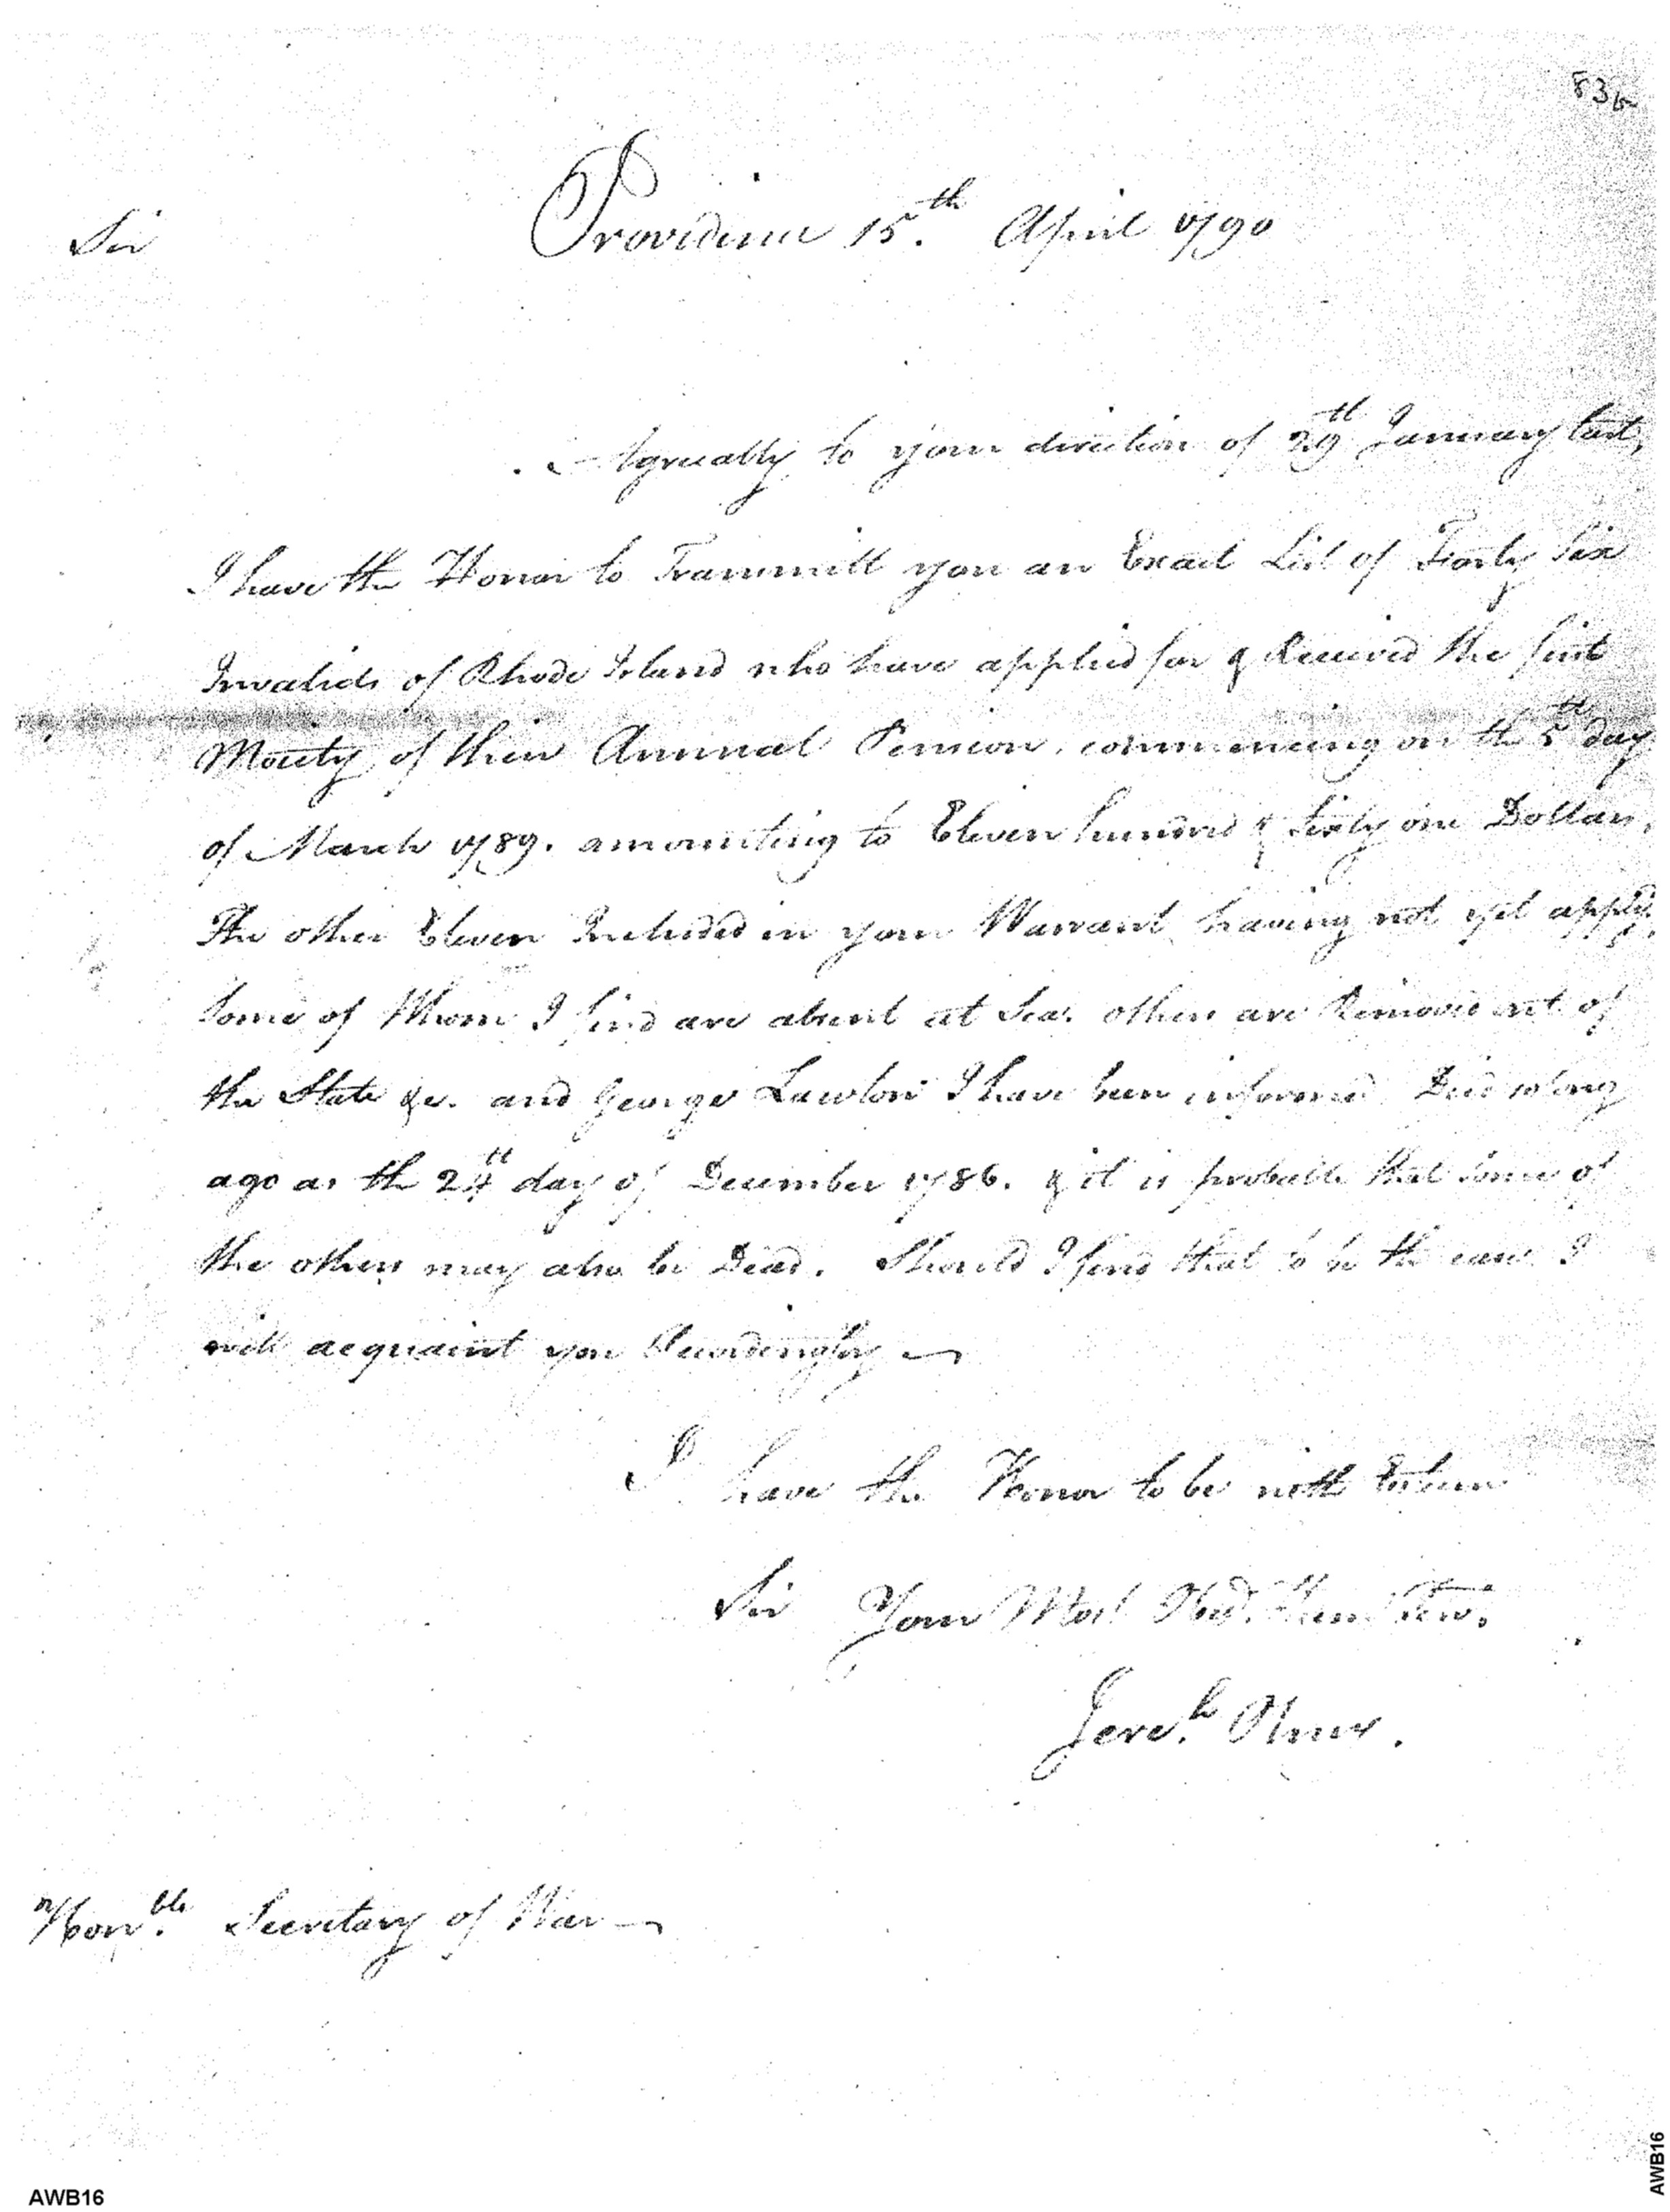 83b
Providence 15.th April 1790
Sir
Agreeably to your direction of 29th January last,
I have the Honor to Transmitt you an Exact List of Forty Six
Invalids of Rhode Island who have applied for & Received the first
Moiety of their Annual Pension, commencing on the 5th day
of March 1789. amounting to Eleven hundred & Sixty one Dollars,
The other Eleven Included in your Warrant having not yet applyd.
Some of Whom I find are absent at Sea. others are Removed out of
the State &c. and George Lawton I have been informed Died so long
ago as the 24th day of December 1786. & it is probable that some of
the others may also be Dead. Should I find that to be the case I
will acquaint you Accordingly
I have the Honor to be with Esteem
Sir Your Most Obdt. Hum. Serv.
Jere.h Olney.
Hon.ble Secretary of War
AWB16
AWB16